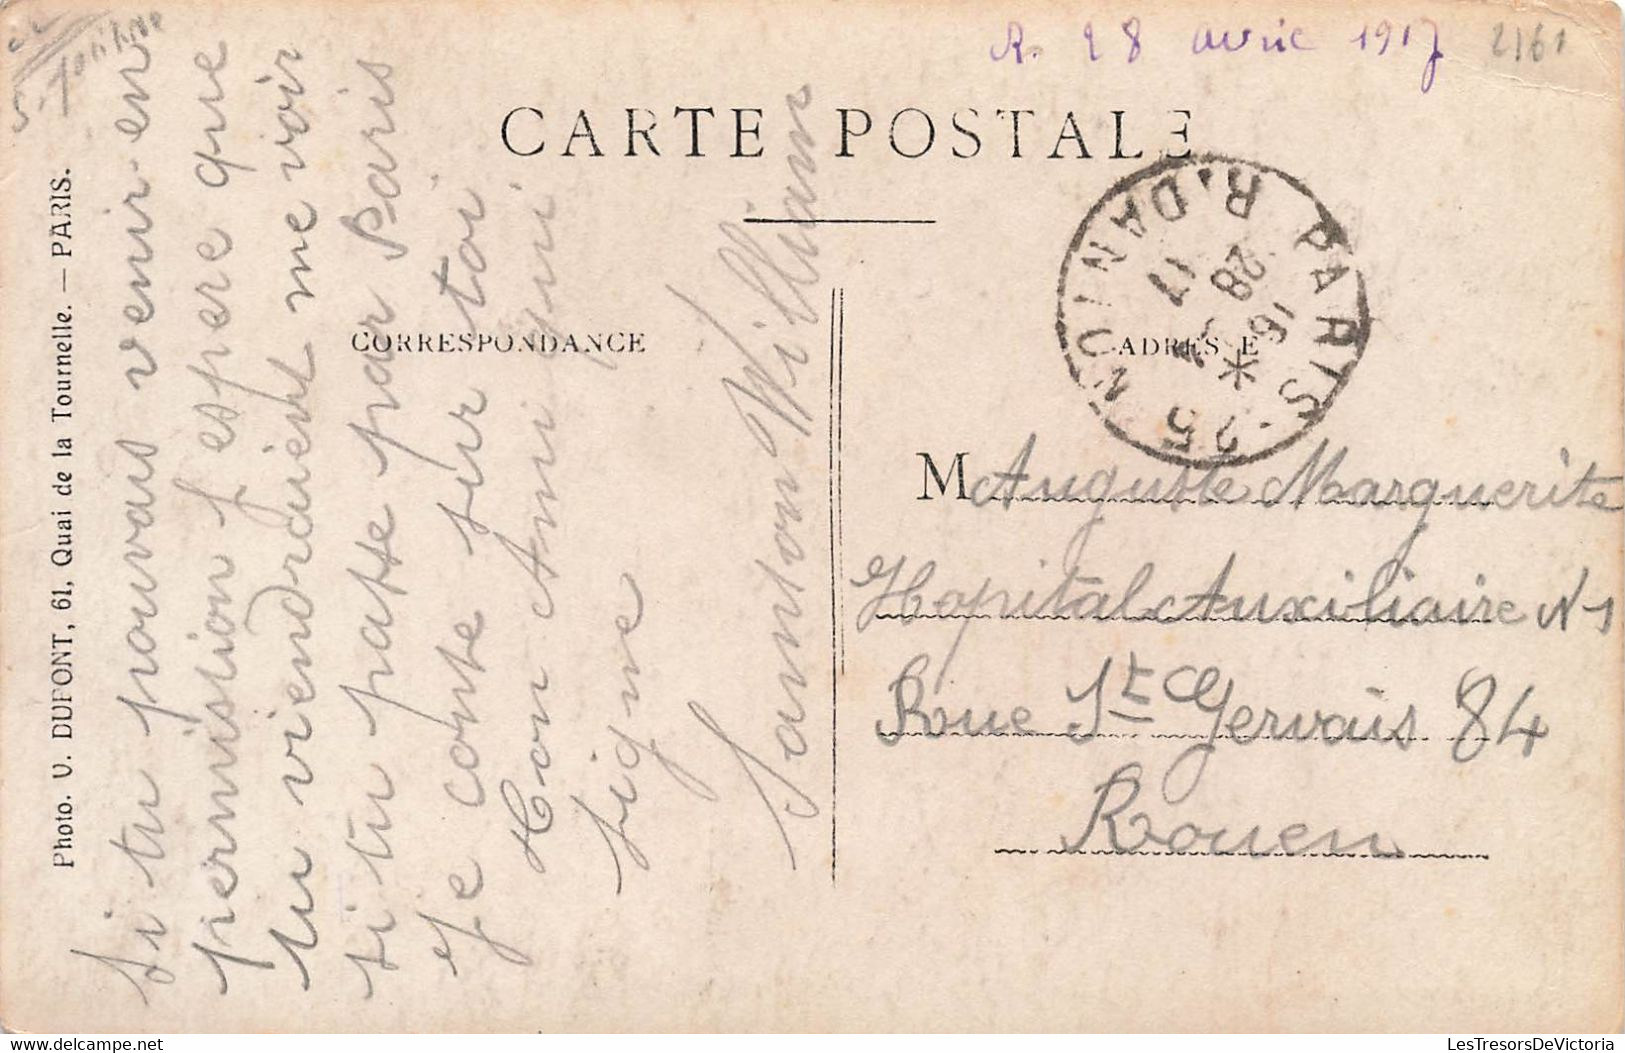 R. 28 avril 1917
2161
CARTE POSTALE
CORRESPONDANCE
ADRESSE
PARIS 25 R. DANTON
16
28
17
Photo. U. DUFONT, 61, Quai de la Tournelle. — PARIS.
si tu pouvais venir en
permission j espere que
tu viendraient me voir
si tu passe par Paris
Je conte sur toi
Ton Ami qui
signe
William
M Auguste Marguerite
Hopital Auxiliaire N 1
Rue St Gervais 84
Rouen
LesTresorsDeVictoria.com
LesTresorsDeVictoria